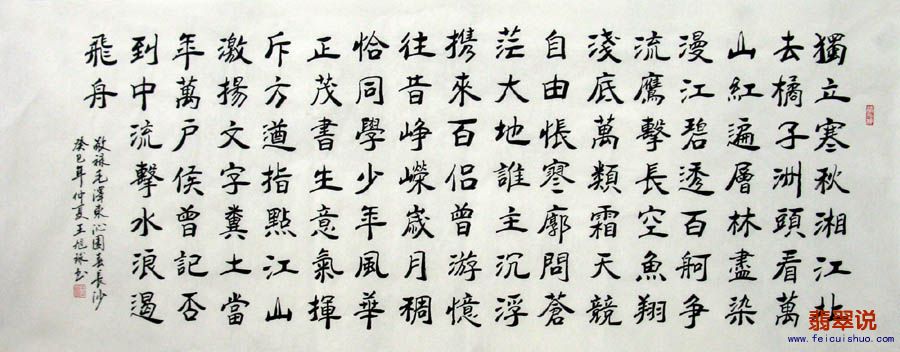 獨立寒秋湘江北
去橘子洲頭看萬
山紅遍層林盡染
漫江碧透百舸争
流鷹擊長空魚翔
淺底萬類霜天競
自由悵寥廓問蒼
茫大地誰主沉浮
携來百侣曾游憶
往昔峥嶸歲月稠
恰同學少年風華
正茂書生意氣揮
斥方遒指點江山
激揚文字糞土當
年萬户侯曾記否
到中流擊水浪遏
飛舟
敬録毛澤東沁園春長沙
癸巳年仲夏王旭書
翡翠说
www.feicuishuo.com